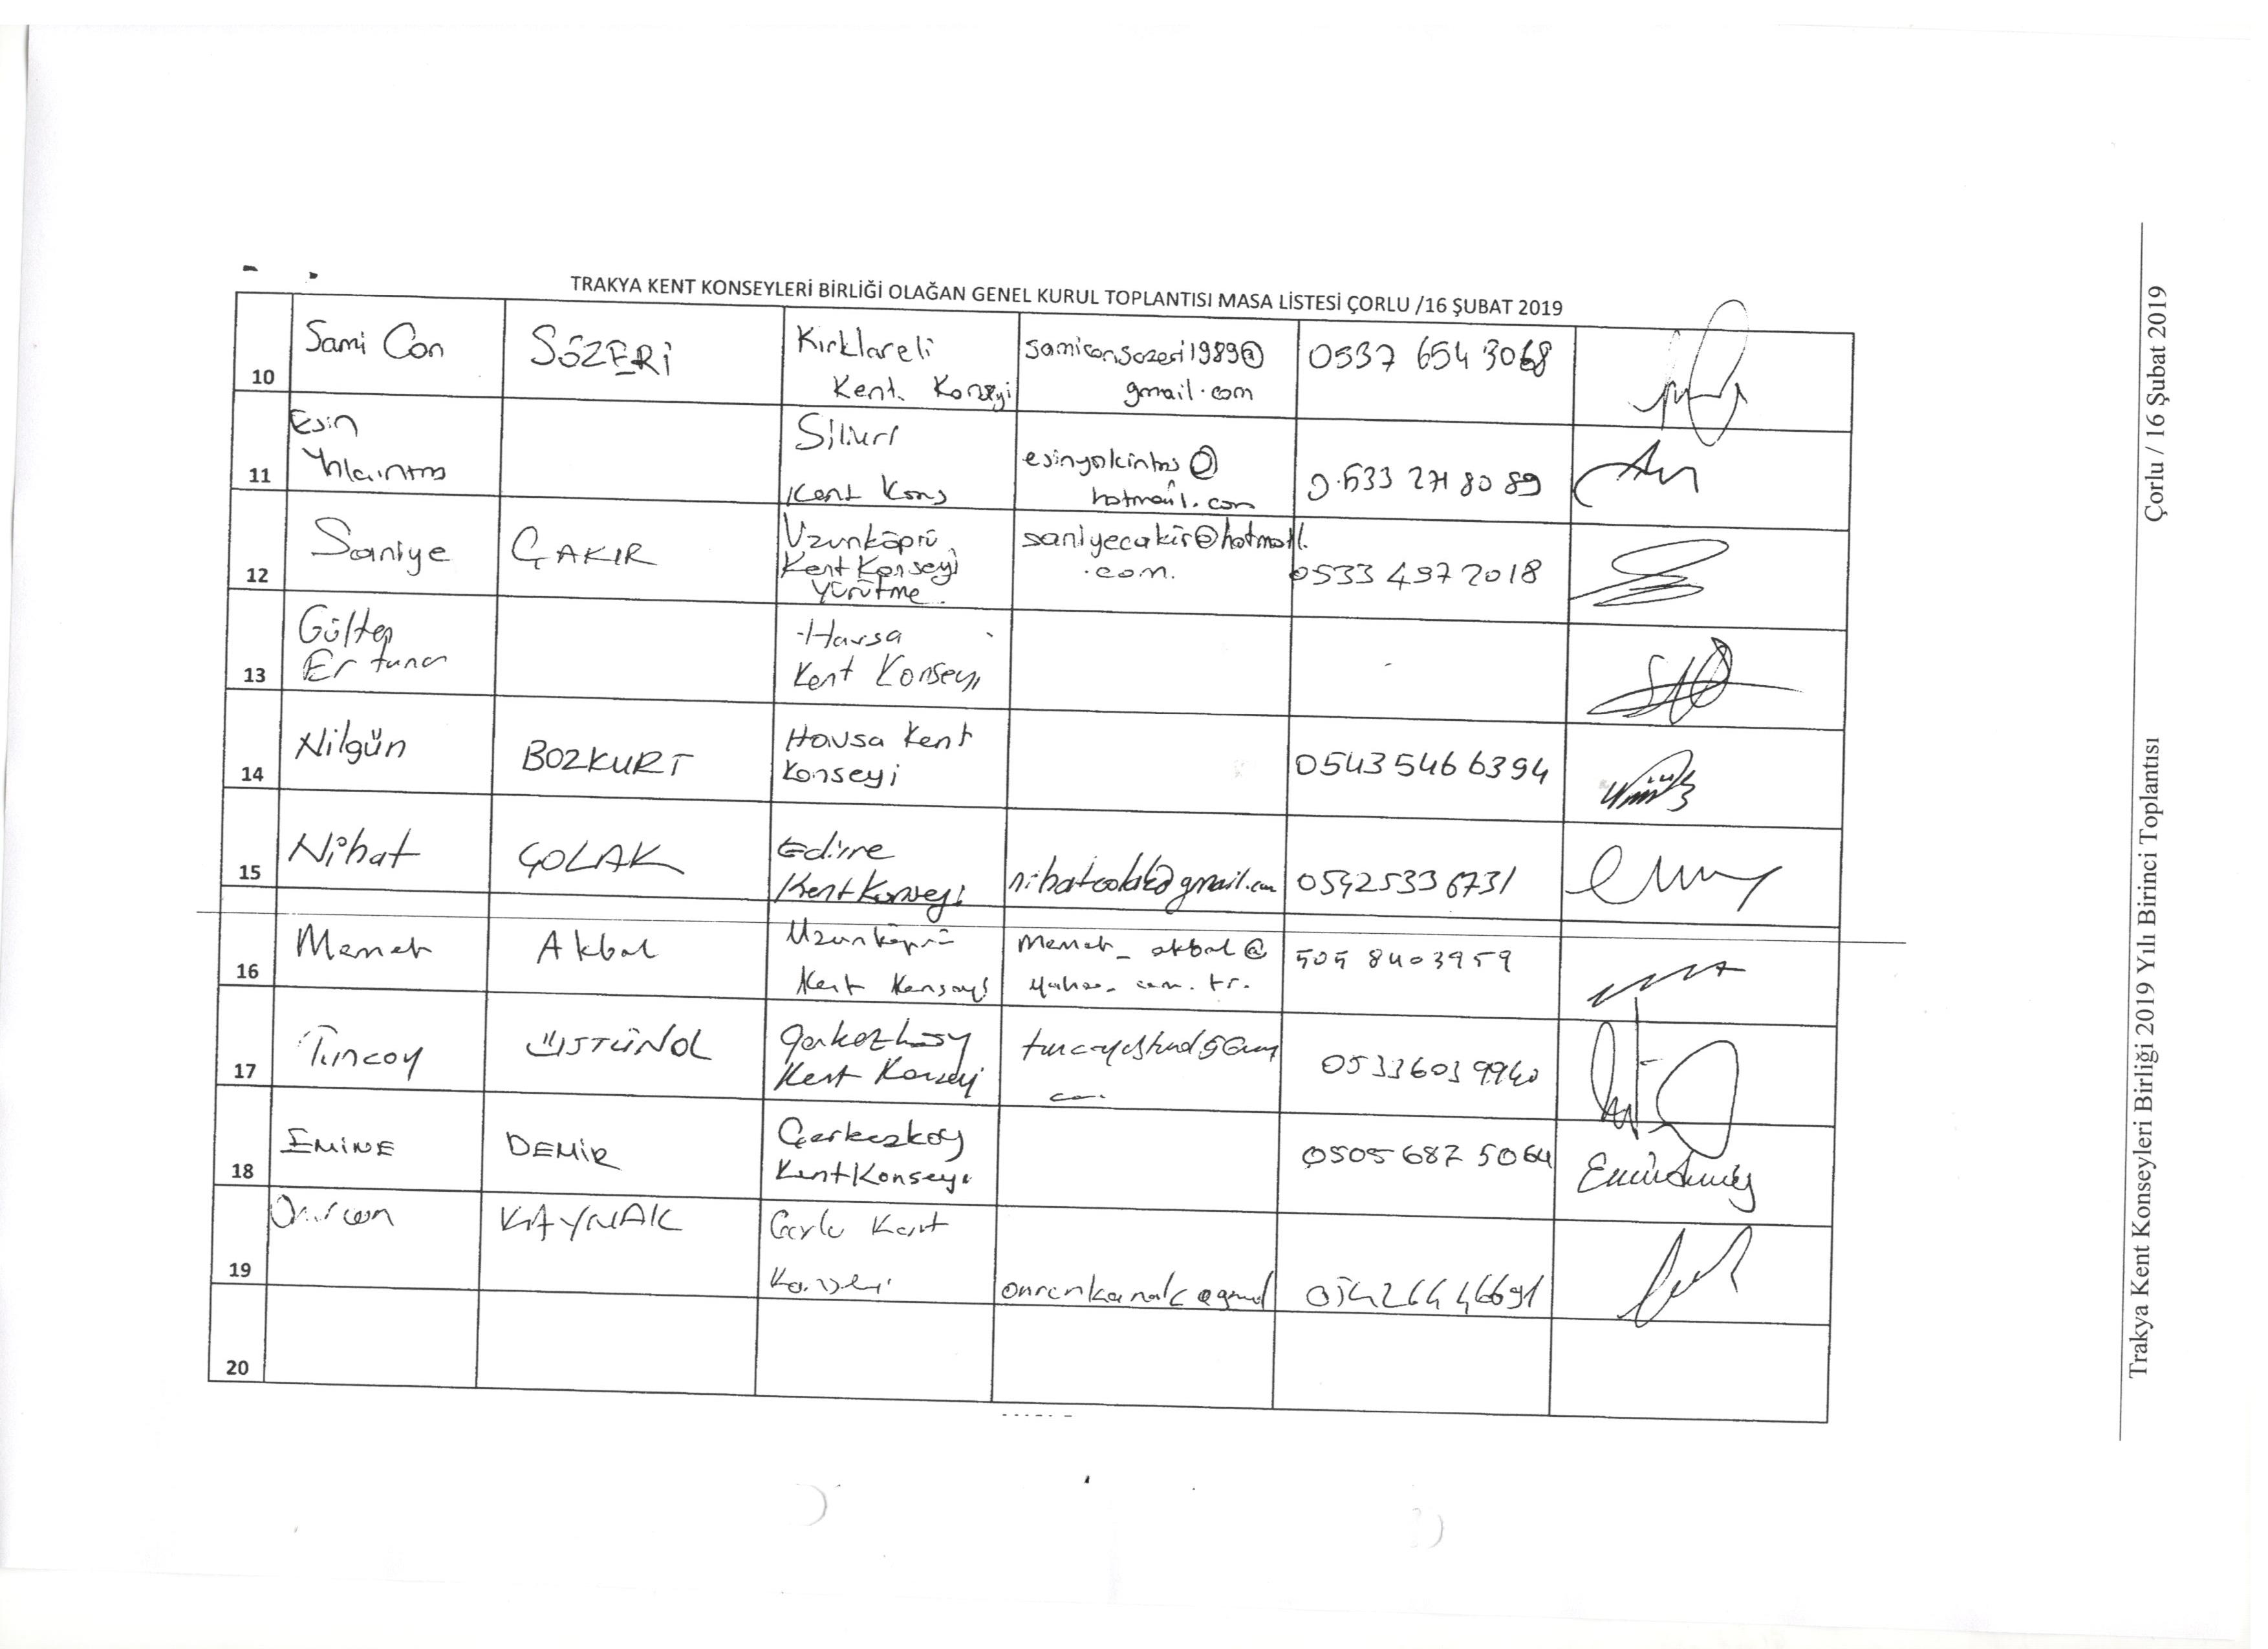 TRAKYA KENT KONSEYLERİ BİRLİĞİ OLAĞAN GENEL KURUL TOPLANTISI MASA LİSTESİ ÇORLU /16 ŞUBAT 2019
10 Sami Can SÖZERİ Kırklareli samicansozeri1989@ 0537 654 3068
Kent. Konseyi gmail.com
Esin Silivri
11 Yalcıntas esinyalcintas@ 0533 271 80 89
Kent Kons hotmail.com
12 Saniye ÇAKIR Uzunköprü saniyecakir@hotmail. 0533 497 2018
Kent Konseyi .com.
Yürütme.
13 Gülten Havsa
Kent Konseyi
14 Nilgün BOZKURT Havsa Kent 0543 546 6394
Konseyi
15 Nihat ÇOLAK Edirne nihatcolak@gmail.com 0542 533 6731
Kent Konseyi
16 Akbal Uzunköprü 505 8403959
Kent Konseyi yahoo.com.tr.
17 Tuncay ÜSTÜNOL Çerkezköy 0533 603 9940
Kent Konseyi
18 EMİNE DEMİR Çerkezköy 0505 687 5064
Kent Konseyi
19 KAYNAK Çorlu Kent
Konseyi
20
Trakya Kent Konseyleri Birliği 2019 Yılı Birinci Toplantısı Çorlu / 16 Şubat 2019